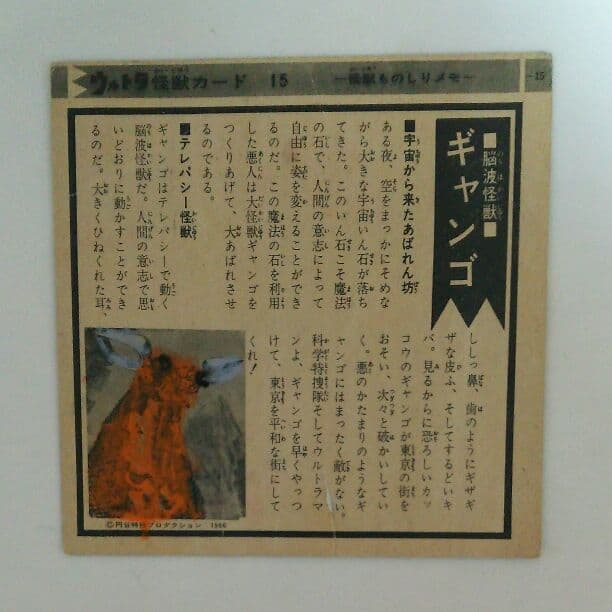 ウルトラ怪獣カード 15 —怪獣ものしりメモ— —15
■脳波怪獣■
ギャンゴ
■宇宙から来たあばれん坊
ある夜、空をまっかにそめな
がら大きな宇宙いん石が落ち
てきた。このいん石こそ魔法
の石で、人間の意志によって
自由に姿を変えることができ
るのだ。この魔法の石を利用
した悪人は大怪獣ギャンゴを
つくりあげて、大あばれさせ
るのである。
■テレパシー怪獣
ギャンゴはテレパシーで動く
脳波怪獣だ。人間の意志で思
いどおりに動かすことができ
るのだ。大きくひねくれた耳、
ししっ鼻、歯のようにギザギ
ザな皮ふ、そしてするどいキ
バ。見るからに恐ろしいカッ
コウのギャンゴが東京の街を
おそい、次々と破かいしてい
く。悪のかたまりのようなギ
ャンゴにはまったく敵がない。
科学特捜隊そしてウルトラマ
ンよ、ギャンゴを早くやっつ
けて、東京を平和な街にして
くれ!
©円谷特技プロダクション 1966